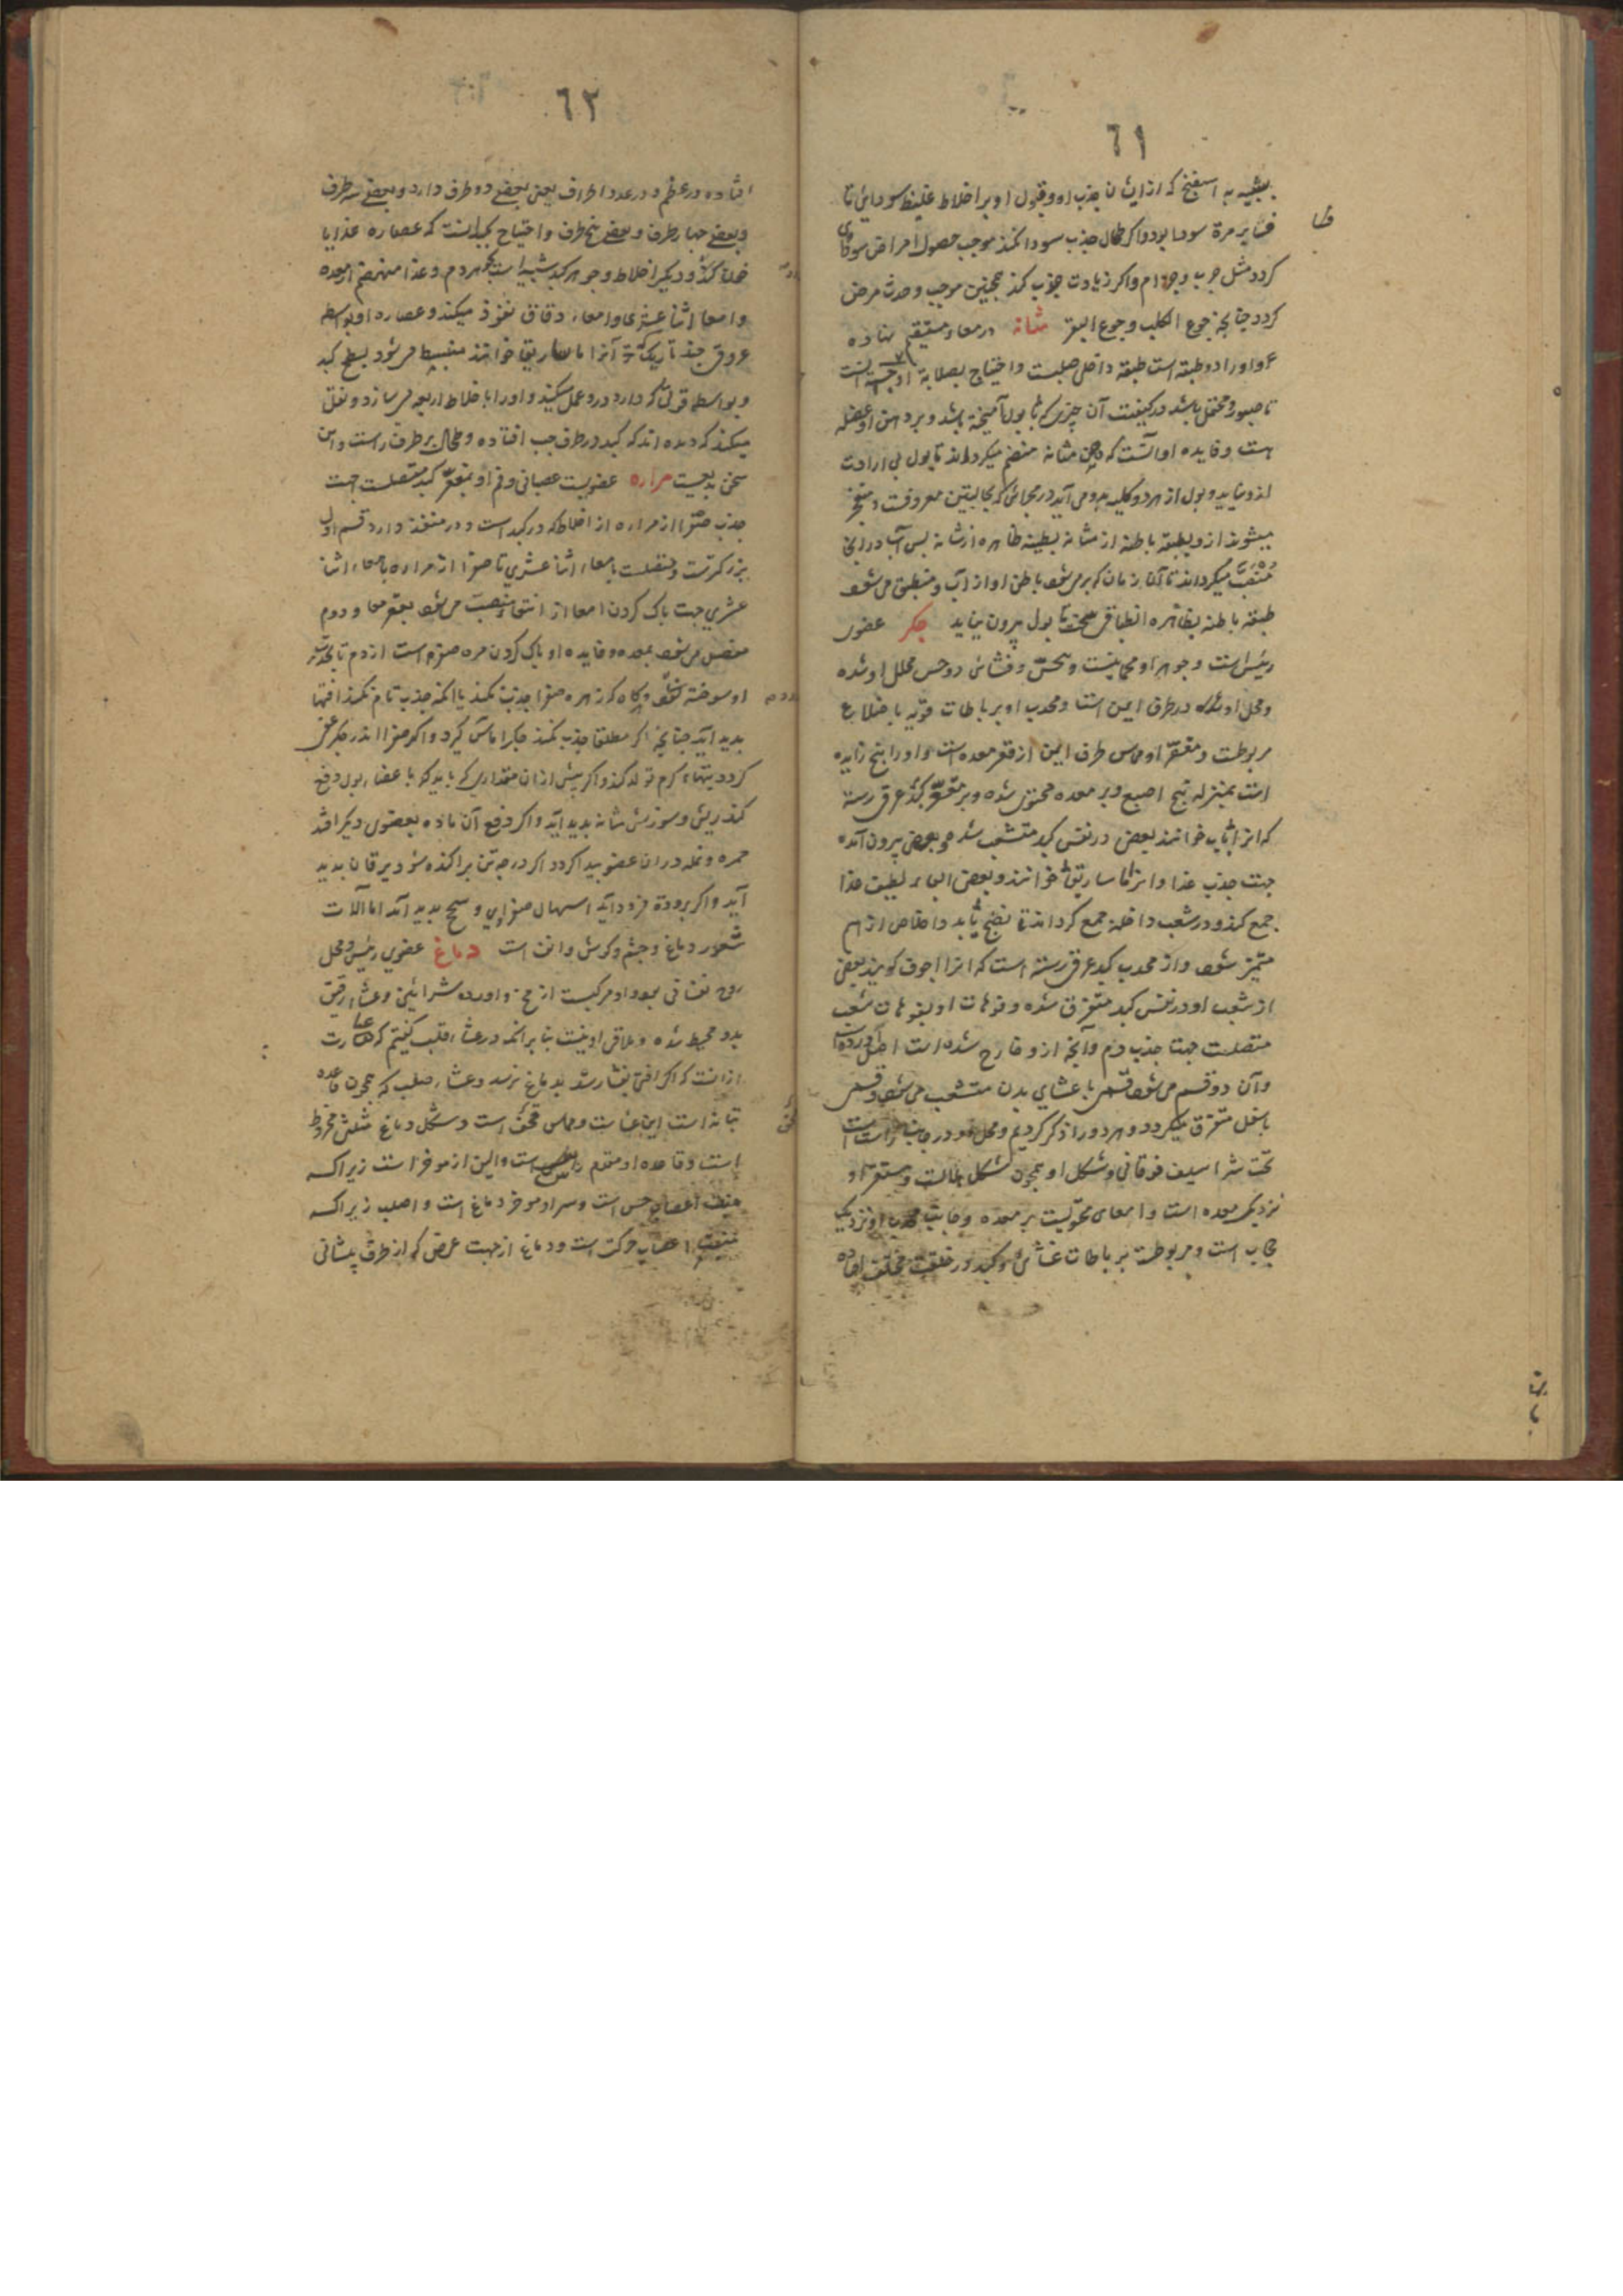 ٦١
بشبیه به اسفنج که از ایشان جذب او و قبول او بر اخلاط غلیظ سوداوی تا
مرة سودا بود و اکر طحال جذب سودا نکند موجب حصول امراض سوداوی
کردد مثل جرب و جذام و اکر زیادت جذب کند همچنین موجب و حدث مرض
کردد چنانچه جوع الکلب و جوع البقر مثانه در معاء مستقیم نهاده
و او را دو طبقه است طبقه داخل صلبست و احتیاج بصلابة او
تا صبور و محتمل باشد در کیفیت آن چیزی که با بول آمیخته باشد و بر دهن او عضله
هست و فایده او آنست که دهن مثانه منضم میکرداند تا بول بی ارادت
ازو نیاید و بول از هر دو کلیه برومی آید در مجاری که بحالبین معروفست
میشوند ازو بطبقه باطنه از مثانه بطبقه ظاهره از مثانه پس آب در
میکرداند تا آن زمان که پر می شود باطن او از آب و منطبق می شود
طبقه باطنه بظاهره انطباقی سخت تا بول بیرون نیاید جکر عضوی
رئیس است و جوهر او لحمانیست و بی حس و غشائی ذو حس محلل او شده
و محل او در طرف ایمن است و محدب او بر باطات قویه باضلاع
مربوطست و مقعر او مماس طرف ایمن از قعر معده است و او را پنج زایده
است بمنزله پنج اصبع و بر معده محتوی شده و بر مقعر کبد عرقی رسته
که انرا باب خوانند بعضی در نفس کبد متشعب شده و بعضی بیرون آمده
جهت جذب غذا و انرا ماساریقا خوانند و بعضی لطیف غذا
جمع کند و در شعب داخله جمع کرداند تا نضج یابد و اخلاص از هم
متمیز شود و از محدب کبد عرقی رسته است که انرا اجوف کویند بعضی
از شعب او در نفس کبد متفرق شده و فوهات او بفوهات شعب
متصلست جهت جذب دم و آنچه ازو خارج شده است اصل اورده است
و آن دو قسم می شود قسمی باعشای بدن متشعب می شود و قسمی
باسفل متفرق میکردد و هر دو را ذکر کردیم و محل او در جانب راست است
تحت شراسیف فوقانی و شکل او همچون شکل هلالست و مقعر او
نزدیک معده است و امعای محتویست بر معده و جانب محدب او نزدیک
حجاب است و مربوطست بر باطات غشائی و کبد در خلقت مختلف افتاده
٦٢
افتاده در عظم و در عدد اطراف یعنی بعضی دو طرف دارد و بعضی سه طرف
و بعضی چهار طرف و بعضی پنج طرف و احتیاج بجکر انست که عصاره غذا را
خون کند و دیکر اخلاط و جوهر کبد شبیه است بجوهر دم و غذا منهضم از معده
و امعا اثنا عشری و امعاء دقاق نفوذ میکند و عصاره او بواسطه
عروق چند تاریک که آنرا ماساریقا خوانند منبسط می شود بسطح کبد
و بواسطه قوتی که دارد درو عمل میکند و او را باخلاط اربعه می سازد و نقل
میکند که دیده اند که کبد در طرف چپ افتاده و طحال بر طرف راست و این
سخن بدیعیست مراره عضویست عصبانی و فم او بمقعر کبد متصلست جهت
جذب صفرا از مراره از اخلاط که در کبد است و در منفذ دارد قسم اول
بزرکترست و متصلست بامعاء اثنا عشری تا صفرا از مراره بامعاء اثنا
عشری جهت پاک کردن امعا از منصب می شود بقعر معا و دوم
متصل می شود بمعده و فایده او پاک کردن مره صفرا است از دم تا
او سوخته نشود و هرکاه که زهره صفرا جذب نکند یا انکه جذب تام نکند افتها
پدید آید چنانچه اکر مطلقا جذب نکند جکر اماس کیرد و اکر صفرا اندر جکر عفن
کردد تبهاء کرم تولد کند و اکر بیش از ان مقداری که باید که باعضاء بول دفع
کند ریش و سوزش مثانه پدید آید و اکر دفع آن ماده بعضوی دیکر افتد
حمره و نمله در ان عضو پیدا کردد اکر در همه تن پراکنده شود یرقان پدید
آید و اکر بروده فرود آید اسهال صفراوی و سحج پدید آید اما آلات
شعور دماغ و چشم و کوش و انف است دماغ عضوی رئیس و محل
روح نفسانی بود و او مرکبست از مخ و اورده شرایین و غشاء رقیق
بدو محیط شده و ملاقی او نیست بنا بر انکه در غشاء قلب کفتیم که
از انست که اکر افتی بغشا رسد بدماغ نرسد و غشاء صلب که همچون قاعده
تبانه است این غشاست و مماس قحف است و شکل دماغ مثلثی مخروط
است و قاعده او مقدم راس است و الین از موخر است زیرا که
منبت اعصاب حس است و سر او موخر دماغ است و اصلب زیرا که
منبت اعصاب حرکت است و دماغ از جهت عرض که از طرف پیشانی